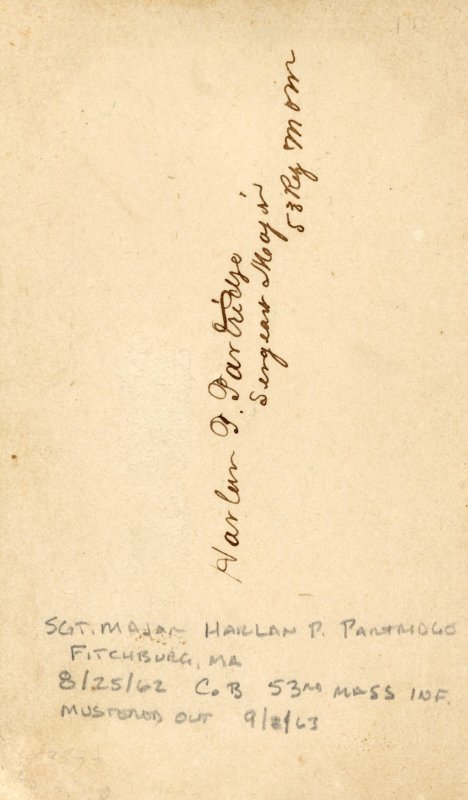 Harlan P. Partridge
Sergeant Major
53 Reg M.V.M
SGT. MAJOR HARLAN P. PARTRIDGE
FITCHBURG, MA
8/25/62 Co. B 53RD MASS INF.
MUSTERED OUT 9/2/63